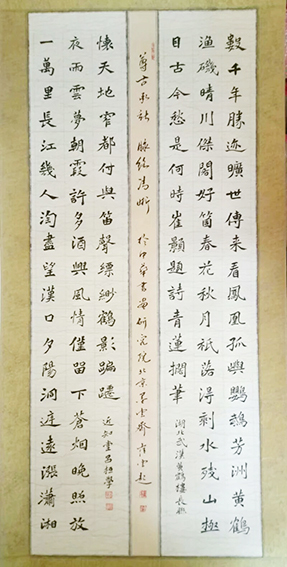 數千年勝迹曠世傳来看鳳凰孤嶼鸚鵡芳洲黄鶴
漁磯晴川傑閣好箇春花秋月祇落得剩水残山極
目古今愁是何時崔顥題詩青蓮擱筆
湖北武漢黄鶴樓長聯
於中華書畫研究院北京墨雲齋
一萬里長江幾人淘盡望漢口夕陽洞庭遠漲瀟湘
夜雨雲夢朝霞許多酒興風情僅留下蒼烟晚照放
懷天地窄都付與笛聲縹緲鶴影蹁躚